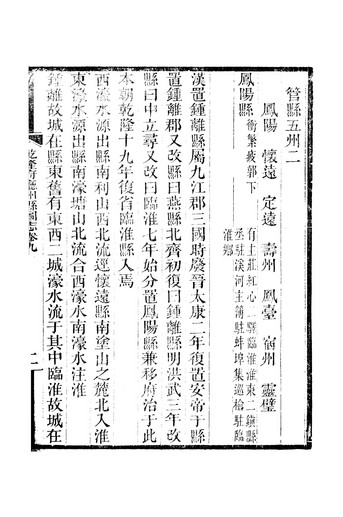 管縣五州二
鳳陽 懷遠 定遠 壽州 鳳臺 宿州 靈璧
鳳陽縣 衝繁疲郭下 有王莊紅心二驛臨淮東二鎮縣丞駐溪河主簿駐蚌埠集巡檢駐臨淮鄉
漢置鍾離縣屬九江郡三國時廢晉太康二年復置安帝于縣
置鍾離郡又改縣曰燕縣北齊初復曰鍾離縣明洪武三年改
縣曰中立尋又改曰臨淮七年始分置鳳陽縣兼移府治于此
本朝乾隆十九年復省臨淮縣入焉
西北濠水源出縣南利山西北流逕懷遠縣南塗山之麓北入淮
東濠水源出縣南濠塘山北流合西濠水南濠水注淮
鍾離故城在縣東舊有東西二城濠水流于其中臨淮故城在
乾隆府廳州縣圖志卷九